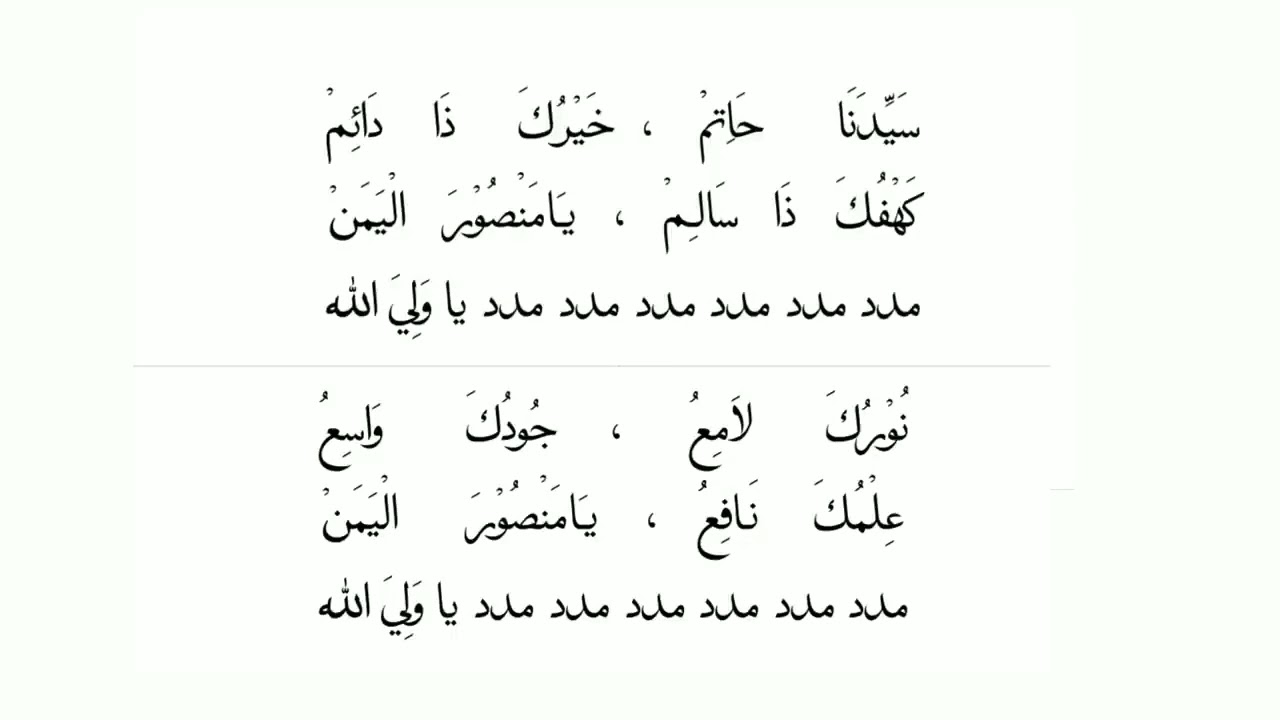 سَيِّدَنَا حَاتِمْ ، خَيْرُكَ ذَا دَائِمْ
كَهْفُكَ ذَا سَالِمْ ، يَامَنْصُوْرَ الْيَمَنْ
مدد مدد مدد مدد مدد مدد يا وَلِيَ الله
نُوْرُكَ لاَمِعُ ، جُودُكَ وَاسِعُ
عِلْمُكَ نَافِعُ ، يَامَنْصُوْرَ الْيَمَنْ
مدد مدد مدد مدد مدد مدد يا وَلِيَ الله